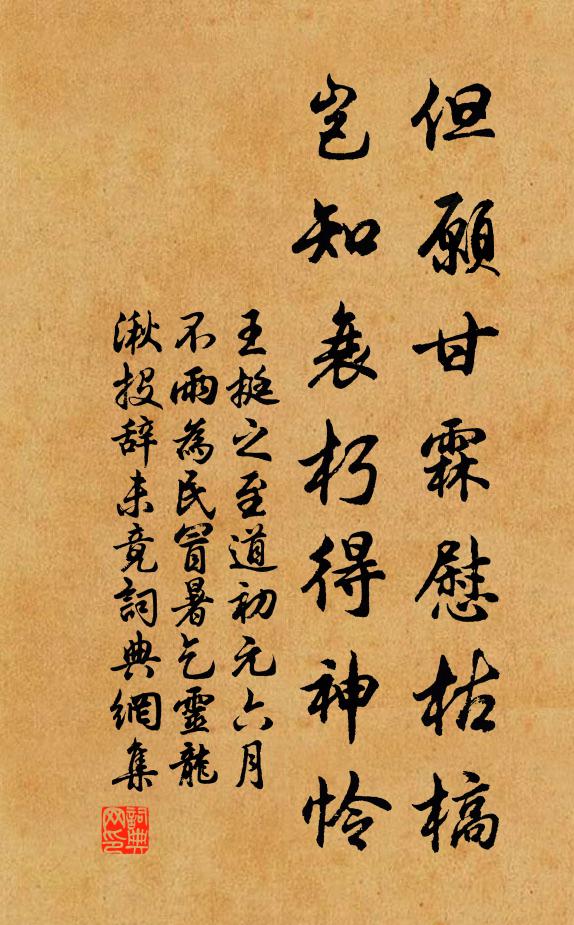 但願甘霖慰枯槁
豈知衰朽得神怜
王挺之至道初元六月
不雨為民冒暑乞靈龍
湫投辞未竟詞典網集
詞典
网印